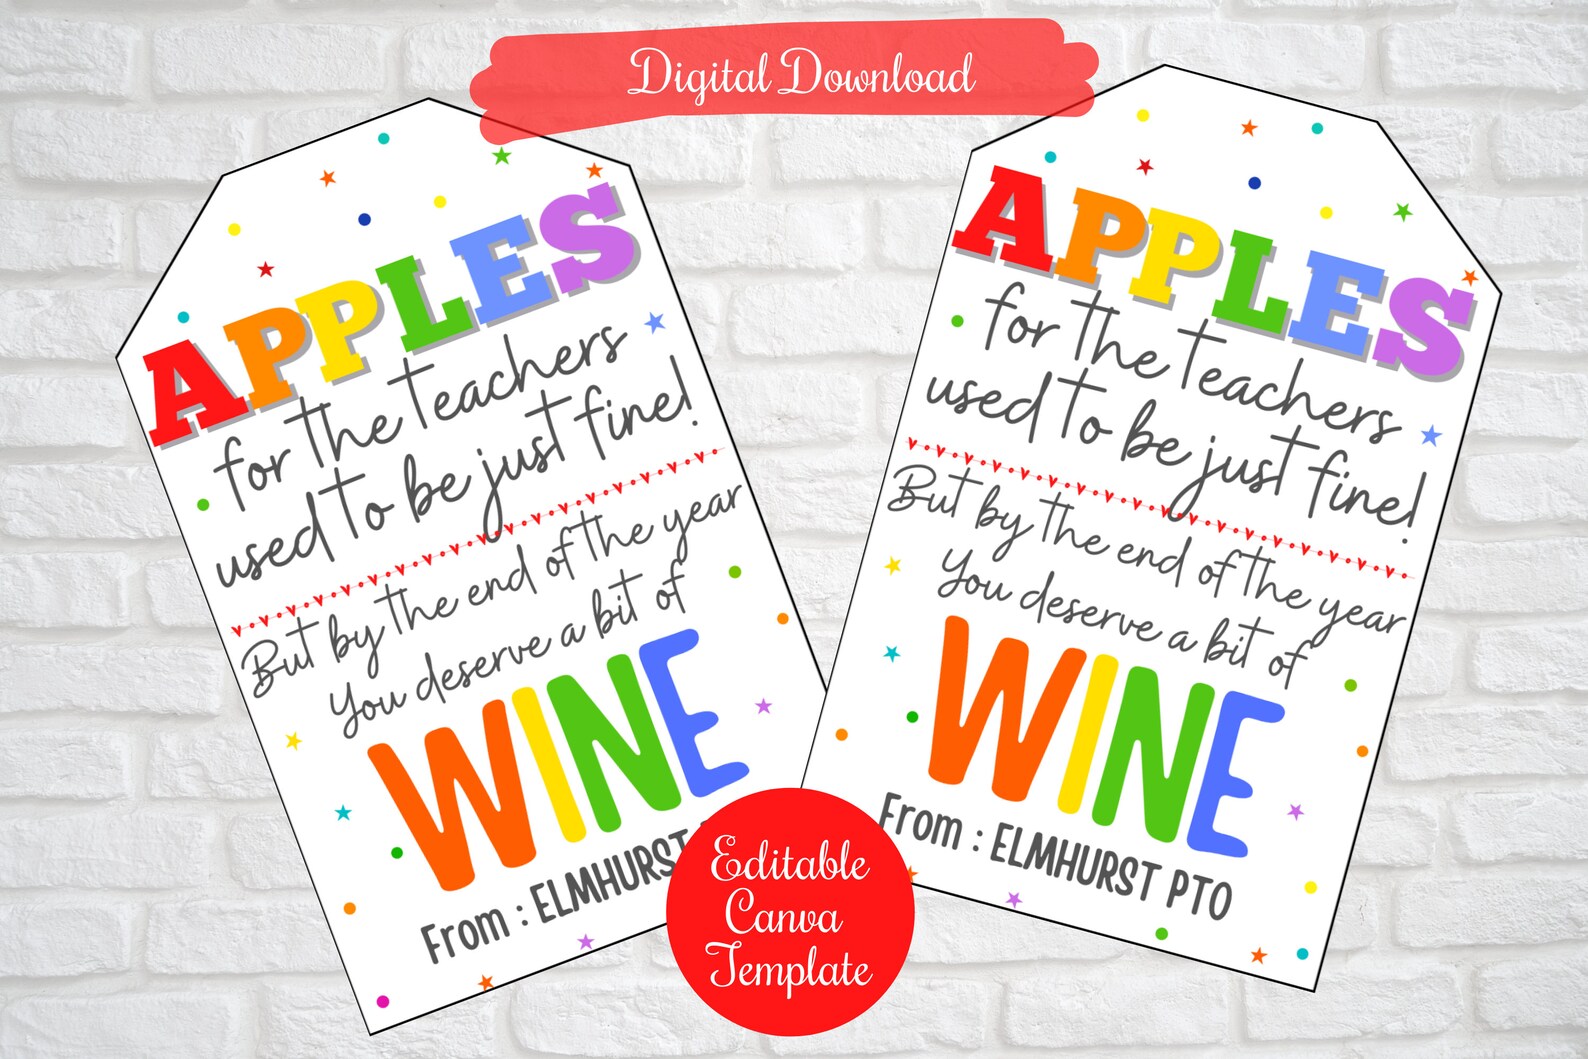 Digital Download
APPLES
for the teachers
used to be just fine!
But by the end of the year
you deserve a bit of
WINE
From : ELMHURST
APPLES
for the teachers
used to be just fine!
But by the end of the year
you deserve a bit of
WINE
From : ELMHURST PTO
Editable
Canva
Template